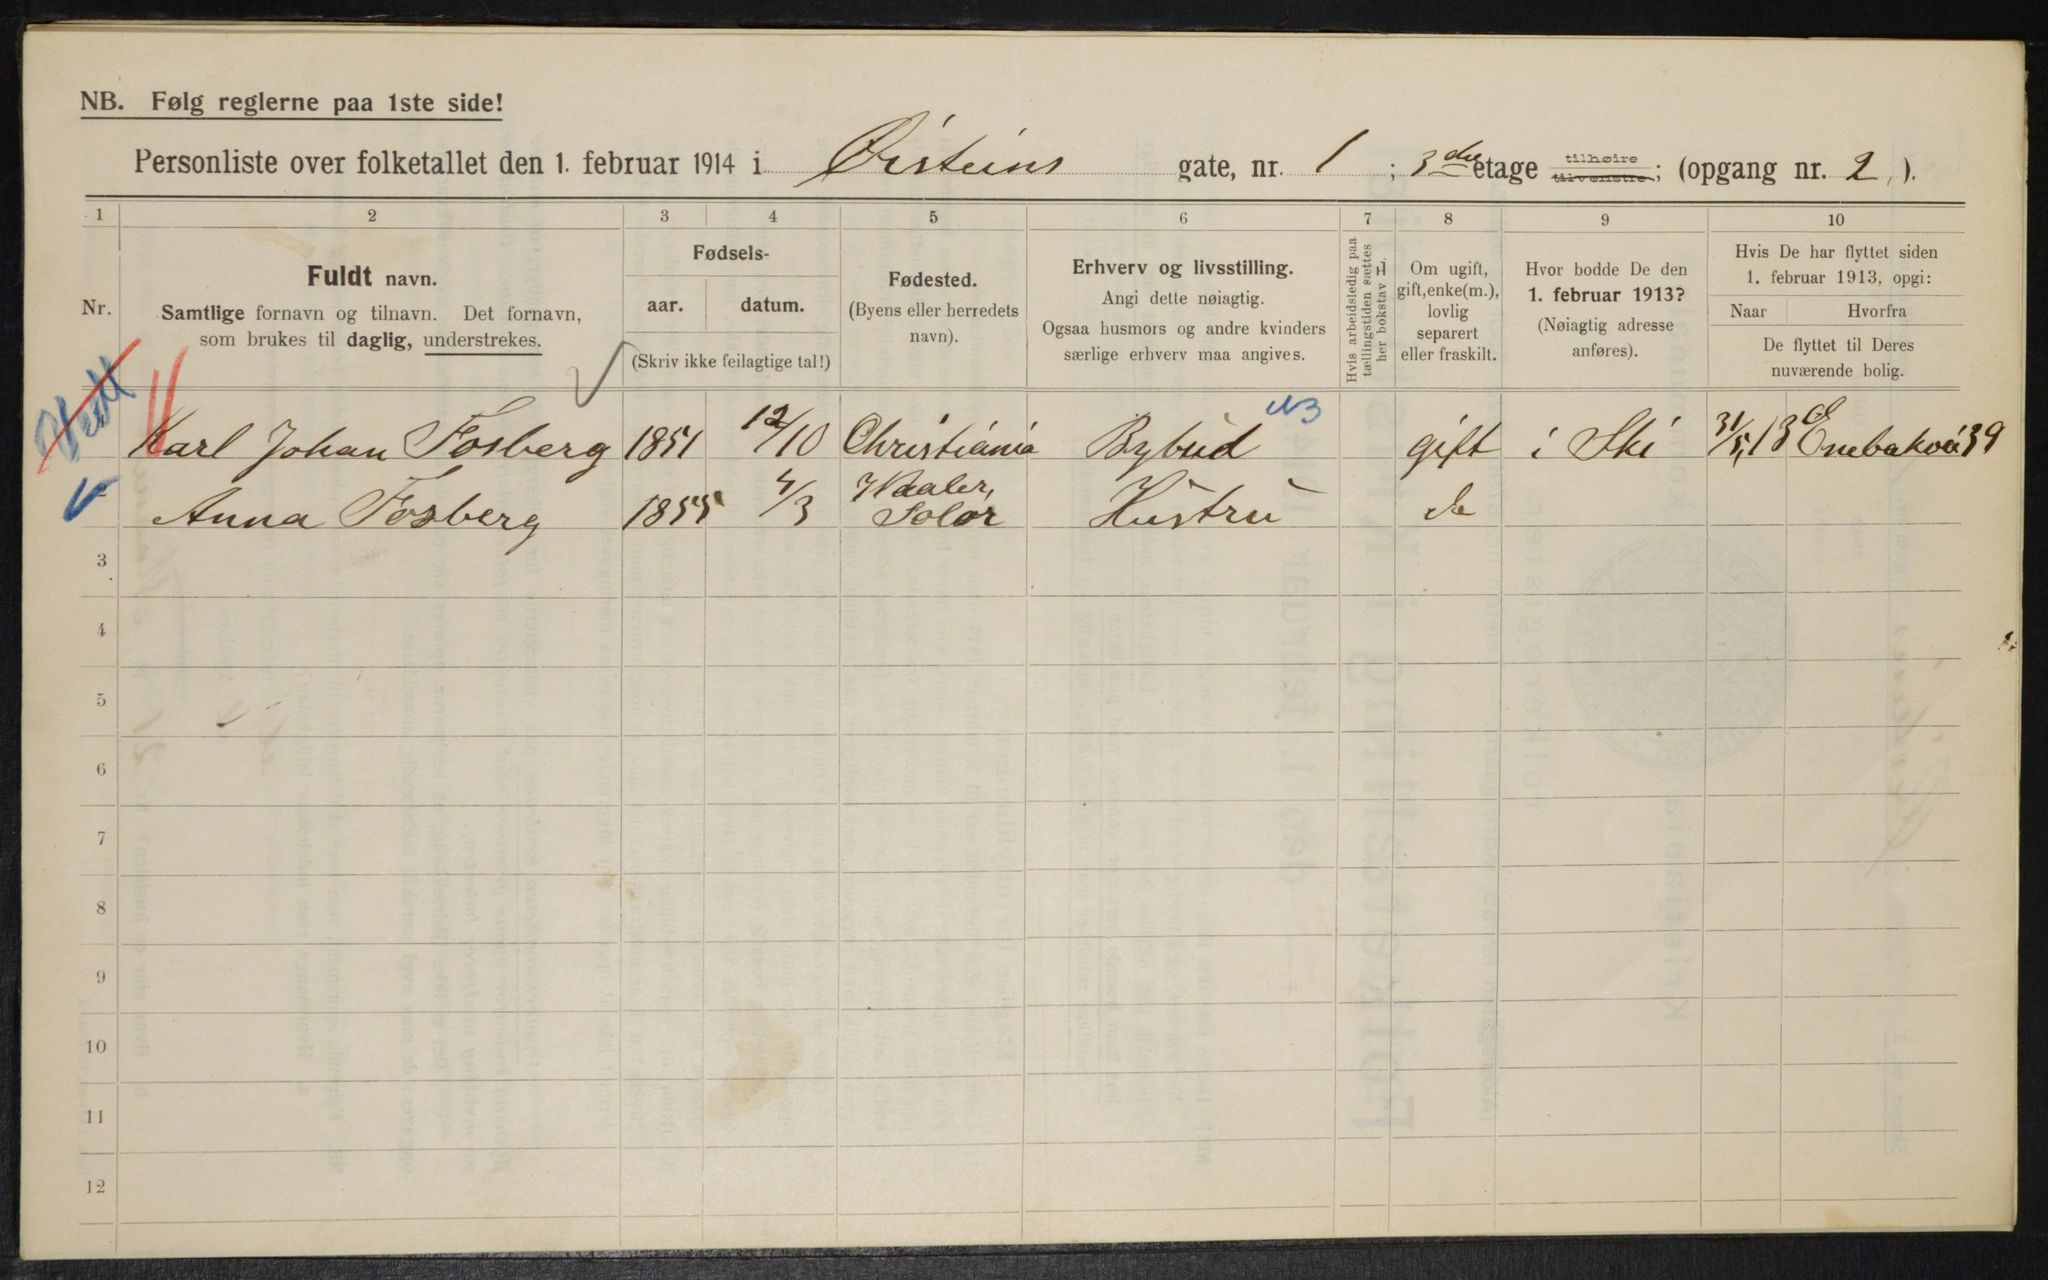 NB. Følg reglerne paa 1ste side!
Personliste over folketallet den 1. februar 1914 i Øisteins gate, nr. 1 ; 3die etage tilhøire tilvenstre; (opgang nr. 2,).
1 2 3 4 5 6 7 8 9 10
Nr.
Fuldt navn.
Samtlige fornavn og tilnavn. Det fornavn,
som brukes til daglig, understrekes.
Fødsels-
aar. datum.
(Skriv ikke feilagtige tal!)
Fødested.
(Byens eller herredets
navn).
Erhverv og livsstilling.
Angi dette nøiagtig.
Ogsaa husmors og andre kvinders
særlige erhverv maa angives.
Hvis arbeidsledig paa
tællingstiden sættes
her bokstav L.
Om ugift,
gift, enke(m.),
lovlig
separert
eller fraskilt.
Hvor bodde De den
1. februar 1913?
(Nøiagtig adresse
anføres).
Hvis De har flyttet siden
1. februar 1913, opgi:
Naar Hvorfra
De flyttet til Deres
nuværende bolig.
Karl Johan Fosberg 1851 12/10 Christiania Bybud gift i Ski 31/5 13 Enebakvei 39
Anna Fosberg 1855 4/3 Waaler, Solør Hustru do
3
4
5
6
7
8
9
10
11
12